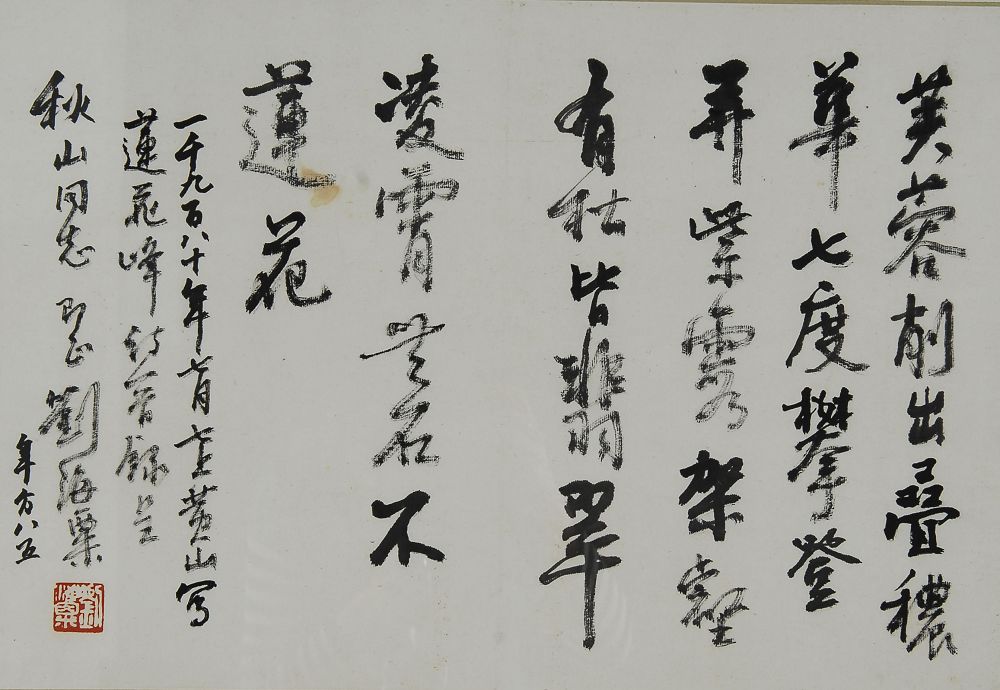 芙蓉削出疊穠
華七度攀登
弄紫霞架壑
有松皆翡翠
凌霄無石不
蓮花
一千九百八十年七月七上黃山寫
蓮花峰錄呈
秋山同志正劉海粟
年方八五
劉海粟